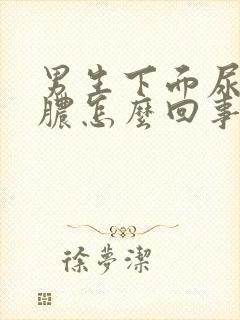 男生下面尿
膿怎麼回事
徐夢潔